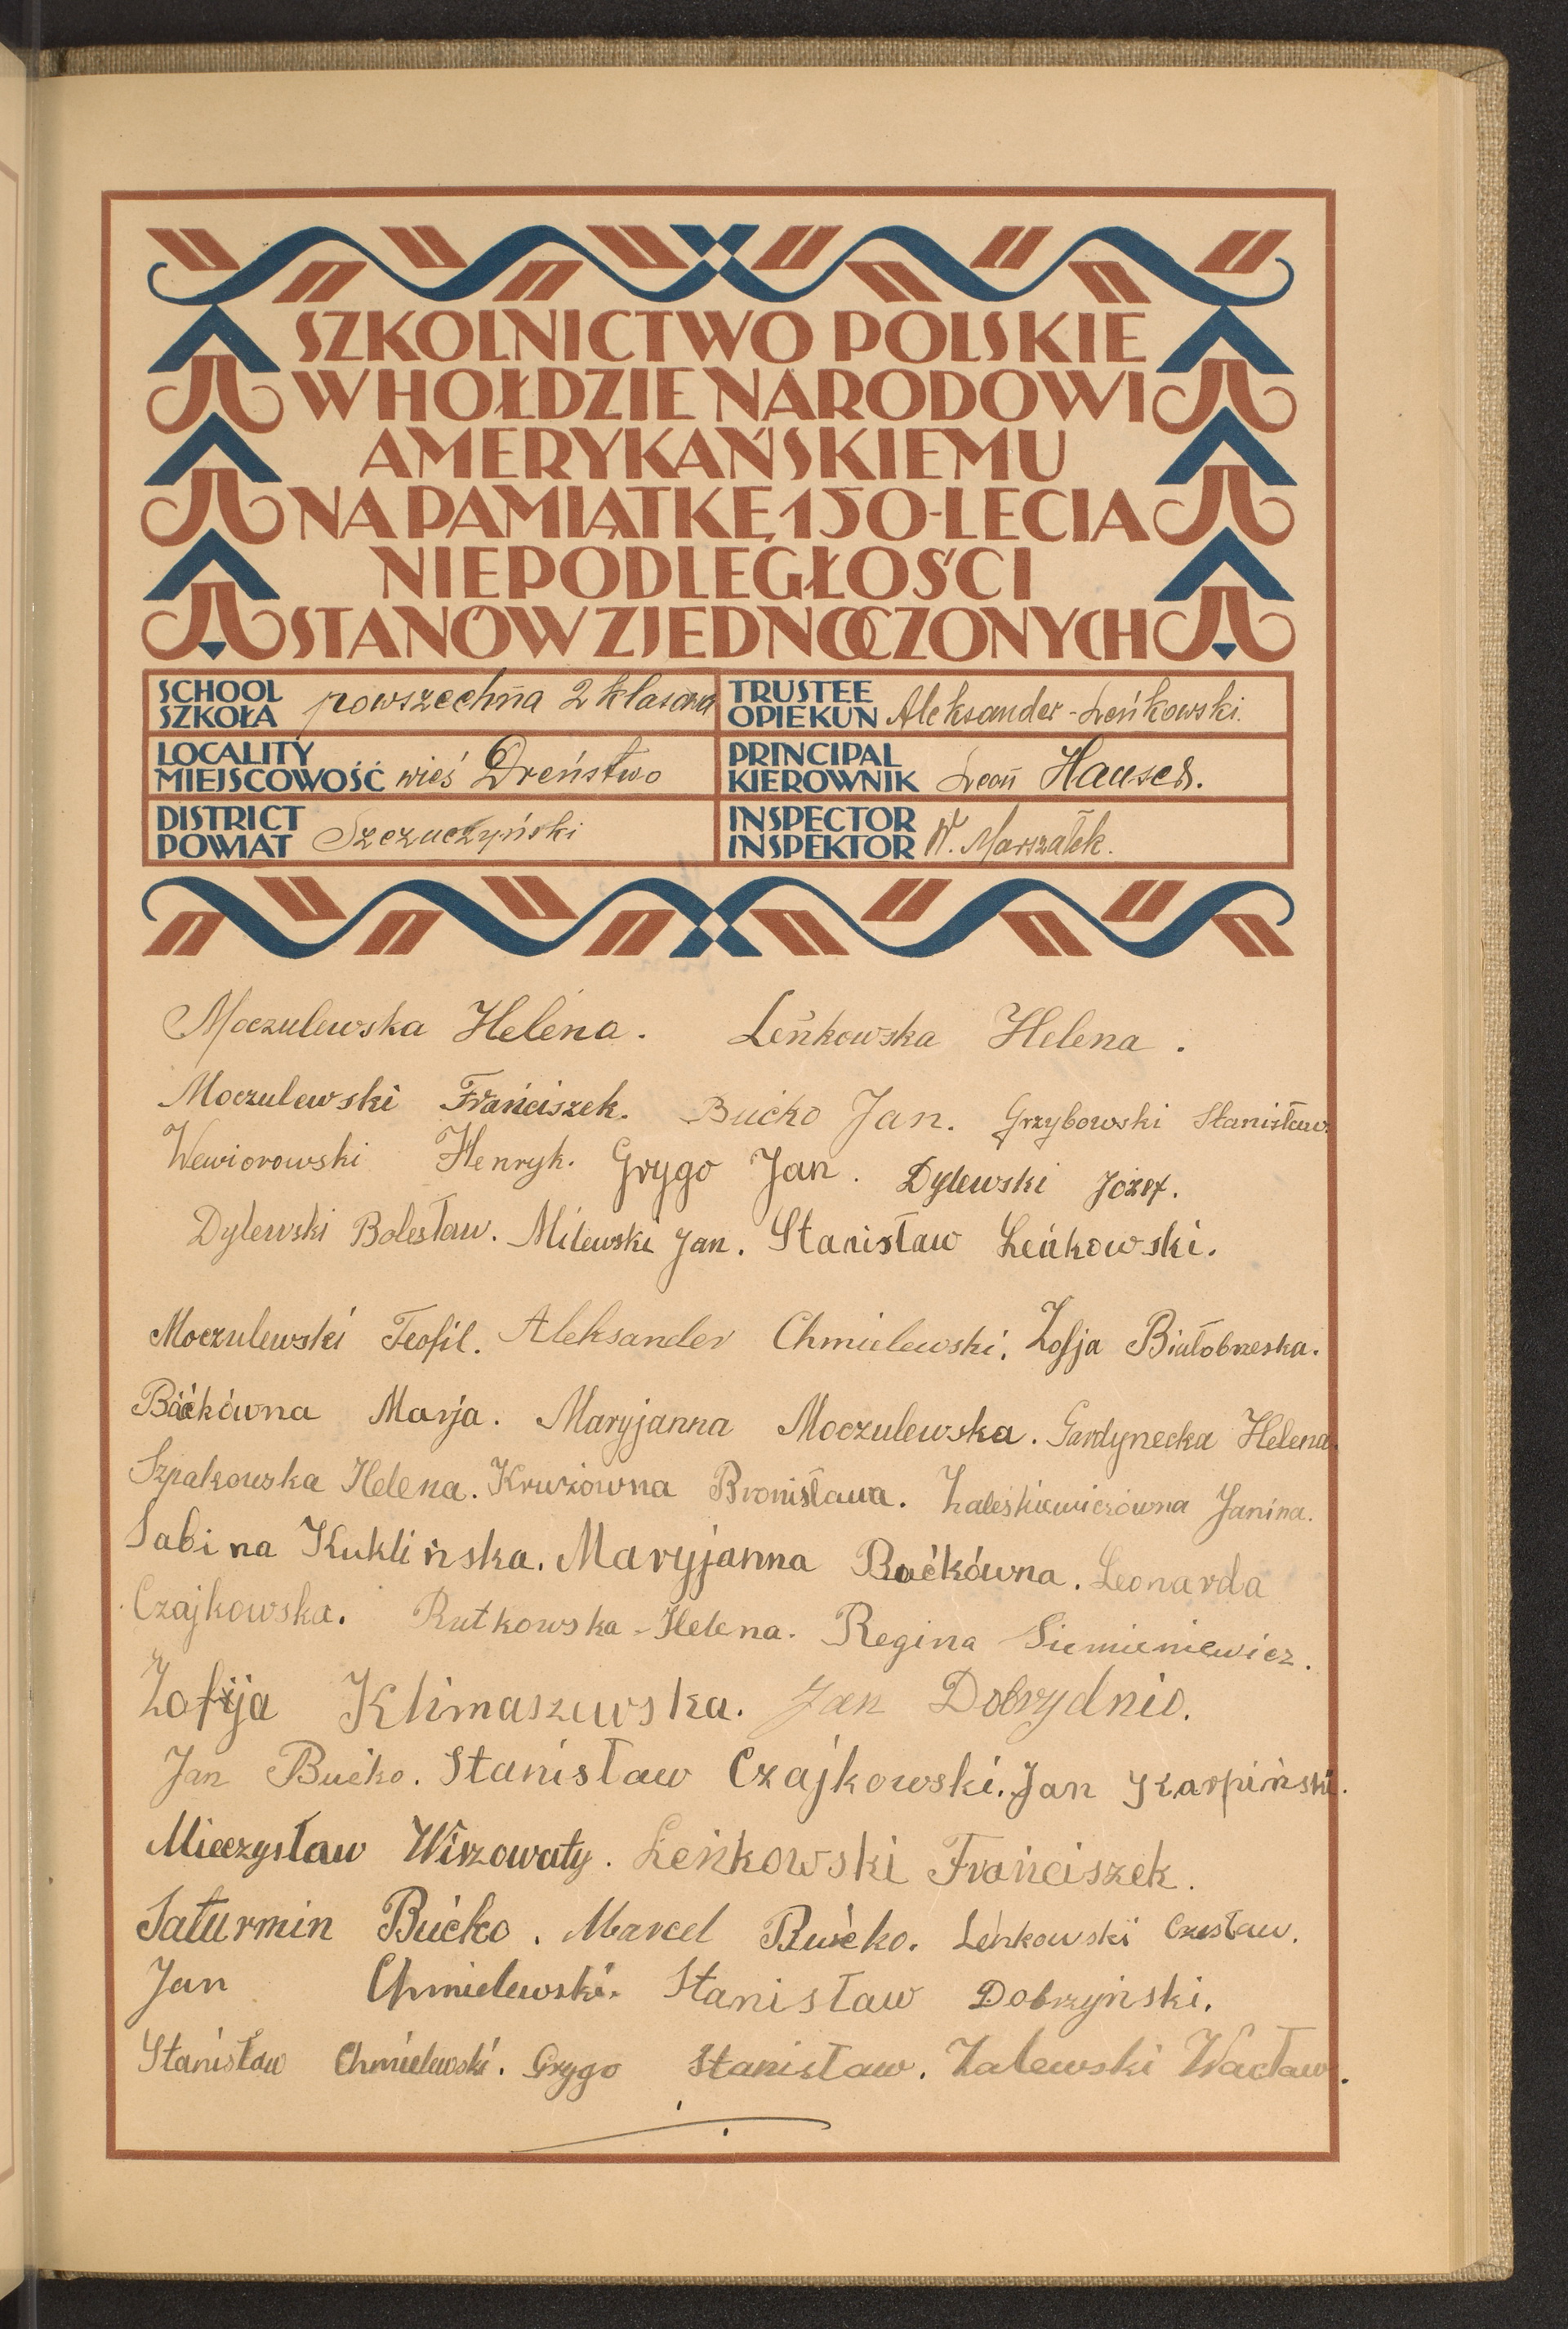 SZKOLNICTWO POLSKIE
W HOŁDZIE NARODOWI
AMERYKAŃSKIEMU
NA PAMIĄTKĘ 150-LECIA
NIEPODLEGŁOŚCI
STANÓW ZJEDNOCZONYCH
SCHOOL
SZKOŁA powszechna 2 klasowa
TRUSTEE
OPIEKUN Aleksander - Leńkowski.
LOCALITY
MIEJSCOWOŚĆ wieś Dreństwo
PRINCIPAL
KIEROWNIK Leon Hauser.
DISTRICT
POWIAT Szczuczyński
INSPECTOR
INSPEKTOR W. Marszałek.
Moczulewska Helena. Leńkowska Helena.
Moczulewski Frańciszek. Bućko Jan. Grzybowski Stanisław.
Wewiorowski Henryk. Grygo Jan. Dylewski Józef.
Dylewski Bolesław. Milewski Jan. Stanisław Leńkowski.
Moczulewski Teofil. Aleksander Chmielewski. Zofja Białobrzeska.
Baćkówna Marja. Maryjanna Moczulewska. Gardynecka Helena.
Szpakowska Helena. Krużówna Bronisława. Zaleśkiewiczówna Janina.
Sabina Kuklińska. Maryjanna Baćkówna. Leonarda
Czajkowska. Rutkowska - Helena. Regina Siemieniewicz.
Zofija Klimaszewska. Jan Dobrydnio.
Jan Bućko. Stanisław Czajkowski. Jan Karpiński.
Mieczysław Wiszowaty. Leńkowski Frańciszek.
Saturmin Bućko. Marcel Bućko. Leńkowski Czesław.
Jan Chmielewski. Stanisław Dobrzyński.
Stanisław Chmielewski. Grygo Stanisław. Zalewski Wacław.